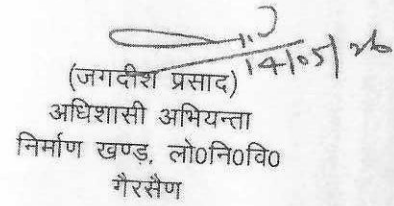 14/05/26
(जगदीश प्रसाद)
अधिशासी अभियन्ता
निर्माण खण्ड, लो0नि0वि0
गैरसैण